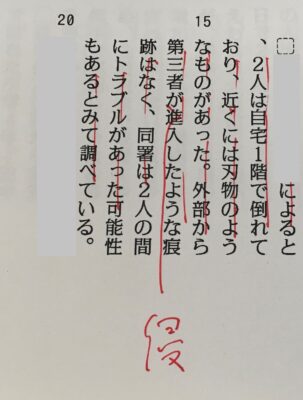 によると
、2人は自宅1階で倒れて
おり、近くには刃物のよう
15
なものがあった。外部から
第三者が進入したような痕
侵
跡はなく、同署は2人の間
にトラブルがあった可能性
もあるとみて調べている。
20